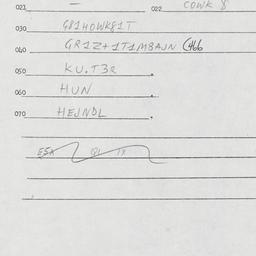 021 — 022 COWK 8
030 G81HOWK81T
040 GR1Z+1T1M8AJN C466
050 KU.T3R .
060 HUN .
070 HEJNDL .